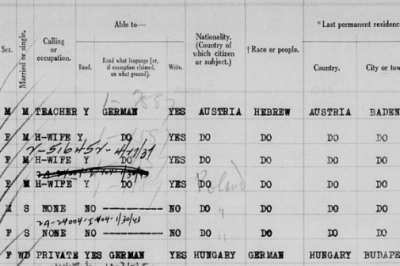 Able to— Nationality. (Country of which citizen or subject.) † Race or people. *Last permanent residence
Sex. Married or single. Calling or occupation. Read. Read what language [or, if exemption claimed, on what ground]. Write. Country. City or tow
M M TEACHER Y GERMAN YES AUSTRIA HEBREW AUSTRIA BADEN
F M H-WIFE Y DO YES DO DO DO DO
F M H-WIFE Y DO YES DO DO DO DO
F M H-WIFE Y DO YES DO DO DO DO
Poland
M S NONE NO NO DO " DO DO DO
F S NONE NO NO DO " DO DO DO
F WD PRIVATE YES GERMAN YES HUNGARY GERMAN HUNGARY BUDAPE